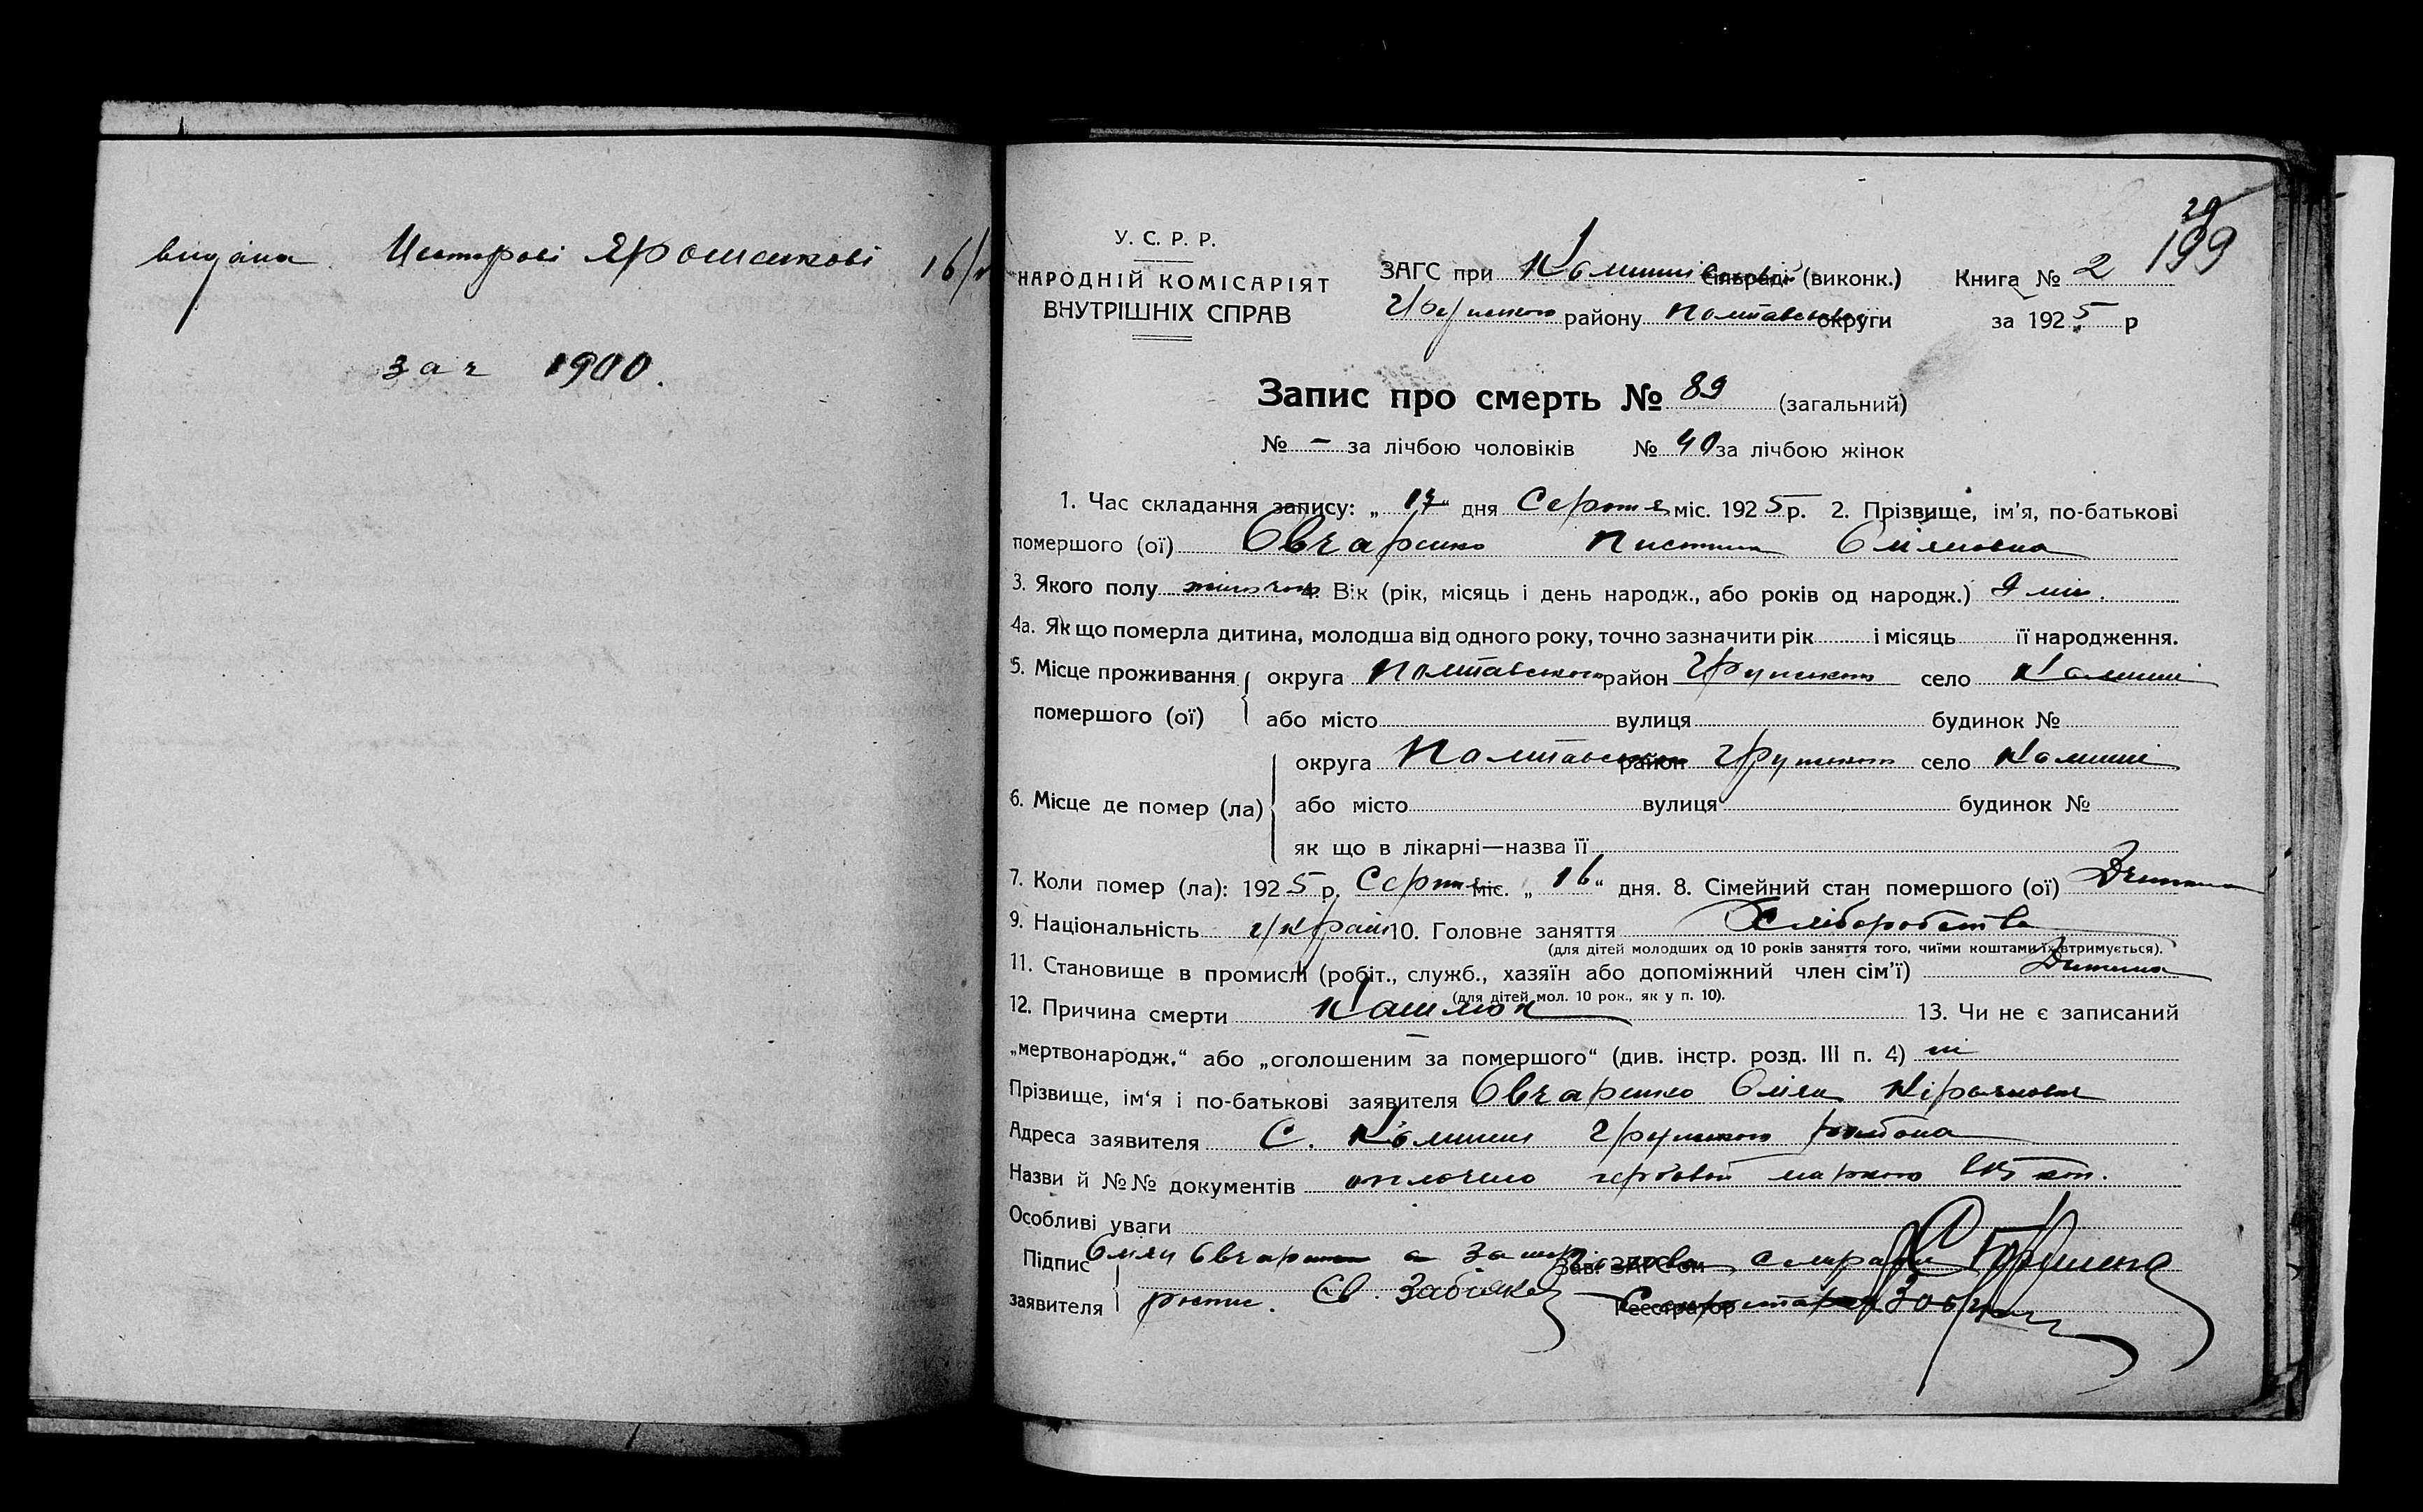 видана Нестерові Ярошенкові 16/
зая 1900.
29
199
У. С. Р. Р.
НАРОДНІЙ КОМІСАРІЯТ
ВНУТРІШНІХ СПРАВ
ЗАГС при сільраді (виконк.) Книга № 2
району Полтавської округи за 1925 р
Запис про смерть № 89 (загальний)
№ - за лічбою чоловіків № 40 за лічбою жінок
1. Час складання запису: „17“ дня Серпня міс. 1925 р. 2. Прізвище, ім'я, по-батькові
помершого (ої) Овчаренко Пистина Омяновна
3. Якого полу жіночого 4. Вік (рік, місяць і день народж., або років од народж.) 9 міс.
4а. Як що померла дитина, молодша від одного року, точно зазначити рік і місяць її народження.
5. Місце проживання помершого (ої) округа Полтавського район Грунського село Комиші
або місто вулиця будинок №
6. Місце де помер (ла) округа Полтавського район Грунського село Комиші
або місто вулиця будинок №
як що в лікарні—назва її
7. Коли помер (ла): 1925 р. Серпня міс. „16“ дня. 8. Сімейний стан помершого (ої) Дитина
9. Національність Україн 10. Головне заняття Хліборобство
(для дітей молодших од 10 років заняття того, чиїми коштами їх втримується).
11. Становище в промислі (робіт., служб., хазяїн або допоміжний член сім'ї) Дитина
(для дітей мол. 10 рок., як у п. 10).
12. Причина смерти Кашлюк 13. Чи не є записаний
„мертвонародж.“ або „оголошеним за помершого“ (див. інстр. розд. III п. 4) ні
Прізвище, ім'я і по-батькові заявителя Овчаренко Омян
Адреса заявителя С. Комиші Грунського района
Назви й №№ документів оплочено гербовой маркою коп.
Особливі уваги
Підпис заявителя Омян Овчаренко а Зав. ЗАГС'ом
роспис. Забіяка Реєстратор